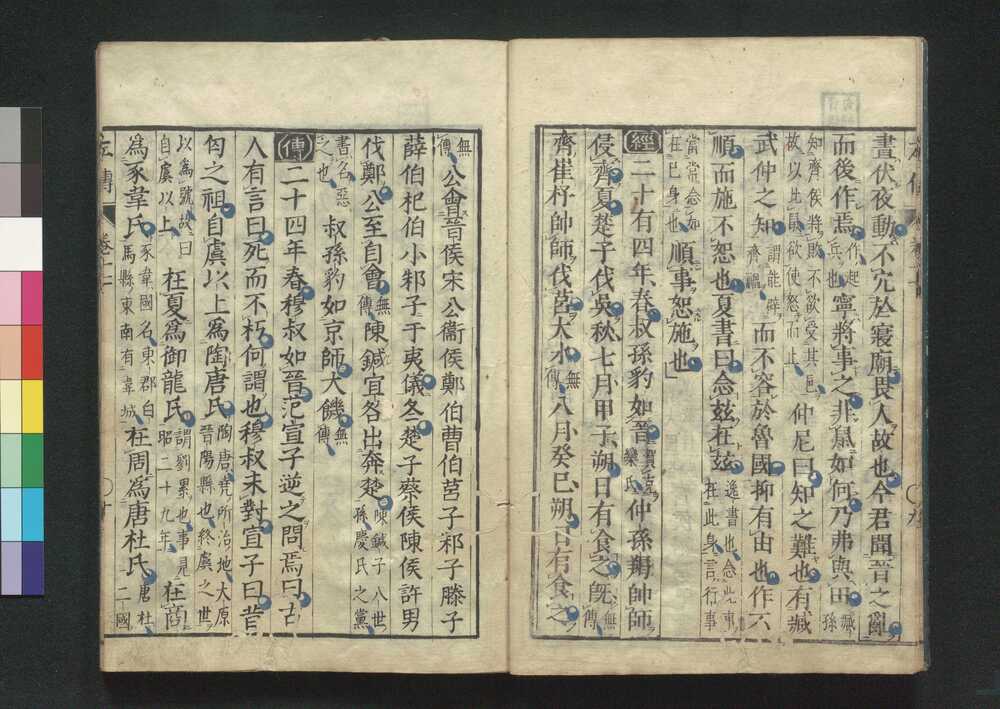 晝伏夜動不穴於寢廟畏人故也今君聞晉之亂
而後作焉作起兵也寧將事之非鼠如何乃弗與田臧孫
知齊侯將敗不欲受其邑故以比鼠欲使怒而止仲尼曰知之難也有臧
武仲之知謂能辟齊禍而不容於魯國抑有由也作不
順而施不恕也夏書曰念玆在玆逸書也念此事在此身言行事
當常念如在己身也順事恕施也
經二十有四年春叔孫豹如晉賀克欒氏仲孫羯帥師
侵齊夏楚子伐吳秋七月甲子朔日有食之旣無傳
齊崔杼帥師伐莒大水無傳八月癸巳朔日有食之
無傳公會晉侯宋公衞侯鄭伯曹伯莒子邾子滕子
薛伯杞伯小邾子于夷儀冬楚子蔡侯陳侯許男
伐鄭公至自會無傳陳鍼宜咎出奔楚陳鍼子八世孫慶氏之黨
書名惡之也叔孫豹如京師大饑無傳
傳二十四年春穆叔如晉范宣子逆之問焉曰古
人有言曰死而不朽何謂也穆叔未對宣子曰昔
匄之祖自虞以上爲陶唐氏陶唐堯所治地大原晉陽縣也終虞之世
以爲號故曰自虞以上在夏爲御龍氏謂劉累也事見昭二十九年在商
爲豕韋氏豕韋國名東郡白馬縣東南有韋城在周爲唐杜氏唐杜二國
左傳
卷十